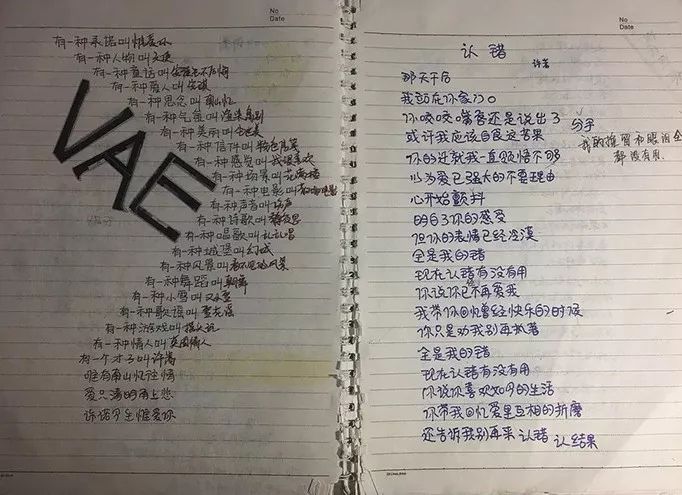 No
Date
有一种承诺叫惟爱你
有一种人物叫天使
有一种童话叫安琪不后悔
有一种爱人叫
有一种思念叫南山忆
有一种气氛叫浅
有一种美丽叫
有一种信件叫粉色信笺
有一种感觉叫我很喜欢
有一种场景叫花满楼
有一种电影叫
有一种声音叫
有一种诗歌叫静夜思
有一种唱歌叫乱乱唱
有一种城堡叫幻城
有一种风景叫看不见的风景
有一种舞蹈叫
有一种小雪叫
有一种歌谣叫
有一种游戏叫
有一种情人叫玫瑰情人
有一个才子叫许嵩
唯有南山忆往情
爱只
许诺今生惟爱你
VAE
No
Date
认错
许嵩
那天下后
我站在你家门口
你咬咬嘴唇还是说出了分手
我的挽留和眼泪全都没有用
或许我应该自食这苦果
你的迁就我一直领悟不够
以为爱已强大的不要理由
心开始颤抖
明白了你的感受
但你的表情已经冷漠
全是我的错
现在认错有没有用
你说你已不再爱我
我带你回忆曾经快乐的时候
你只是劝我别再执着
全是我的错
现在认错有没有用
你说你喜欢如今的生活
你带我回忆爱里互相的折磨
还告诉我别再来认错 认结果